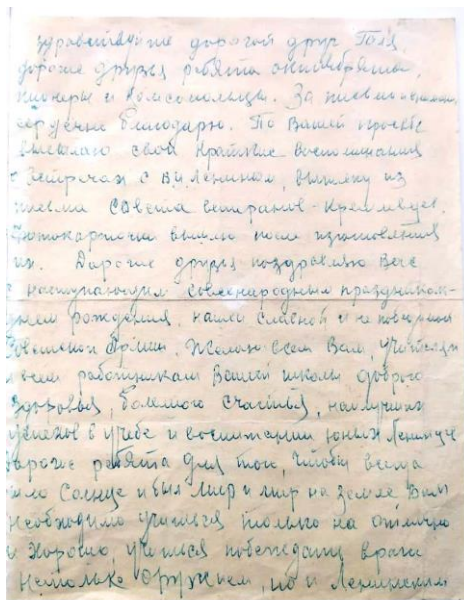 здравствуйте дорогой друг Толя,
дорогие друзья ребята октябрята,
пионеры и комсомольцы. За письмо и
сердечно благодарю. По Вашей просьбе
высылаю свои краткие воспоминания
о встречах с В.И. Лениным, выписку из
письма Совета ветеранов-кремлевцев.
Фотокарточки вышлю после изготовления
их. Дорогие друзья поздравляю Вас
с наступающим всенародным праздником-
днем рождения, нашей славной и непобедимой
Советской Армии. Желаю всем Вам, учителям
и всем работникам Вашей школы доброго
здоровья, большого счастья, наилучших
успехов в учебе и воспитании юных Ленинцев
Дорогие ребята для того, чтобы всегда
было Солнце и был мир и мир на земле Вам
необходимо учиться только на отлично
и хорошо, учиться побеждать врага
нетолько оружием, но и Ленинским